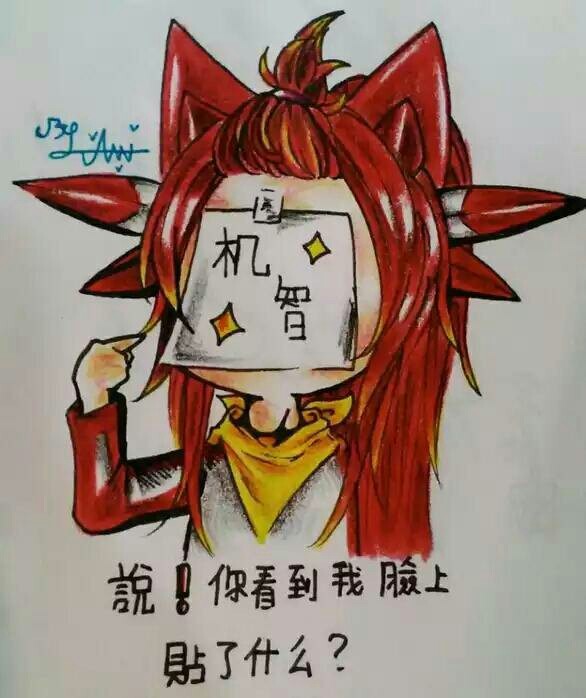 By
机
智
說！你看到我臉上
貼了什么？